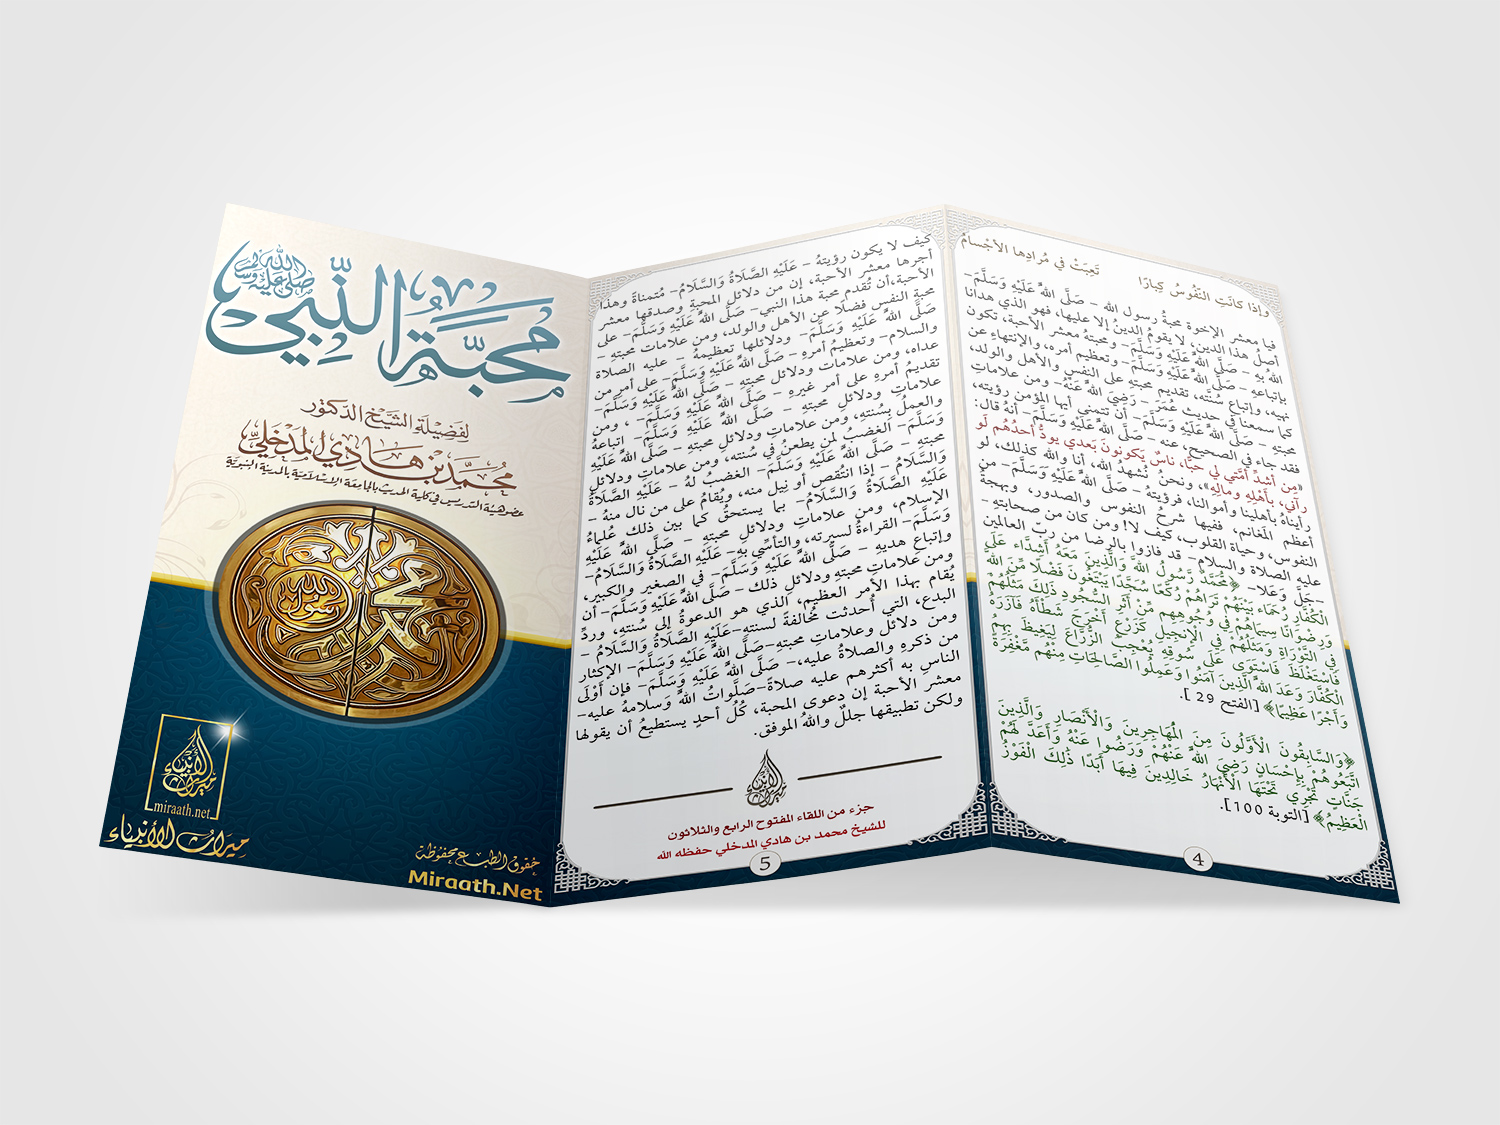 محبَّةُ النِّبيِّ صلى الله عليه وسلم
لفضيلة الشيخ الدكتور
محمد بن هادي المدخلي
عضو هيئة التدريس في كلية الحديث بالجامعة الإسلامية بالمدينة النبوية
الله
رسول
محمد
ميراث الأنبياء
miraath.net
ميراث الأنبياء
حقوق الطبع محفوظة
Miraath.Net
وإذا كانَتِ النّفُوسُ كِبارًا تَعِبَتْ في مُرادِها الأجْسامُ
فيا معشر الإخوة محبةُ رسول الله – صَلَّى اللهُ عَلَيْهِ وَسَلَّمَ–
أصلُ هذا الدين، لا يقومُ الدينُ إلا عليها، فهو الذي هدانا
اللهُ بهِ – صَلَّى اللهُ عَلَيْهِ وَسَلَّمَ– ومحبتهُ معشر الأحبة، تكون
بإتباعهِ – صَلَّى اللهُ عَلَيْهِ وَسَلَّمَ– وتعظيم أمره، والإنتهاءِ عن
نهيه، وإتباع سُنَّته، تقديم محبتهِ على النفس والأهل والولد،
كما سمعنا في حديث عُمَرَ – رَضِيَ اللهُ عَنْهُ– ومن علاماتِ
محبتهِ – صَلَّى اللهُ عَلَيْهِ وَسَلَّمَ– أن تتمنى أيها المؤمن رؤيته،
فقد جاء في الصحيح، عنه – صَلَّى اللهُ عَلَيْهِ وَسَلَّمَ– أنهُ قال:
«مِن أشدِّ أمَّتي لي حبًّا، ناسٌ يَكونونَ بَعدي يودُّ أحدُهُم لَو
رآني، بأَهْلِهِ ومالِهِ»، ونحن نُشهدُ الله، أنا والله كذلك، لو
رأيناهُ بأهلينا وأموالنا، فرؤيتهُ – صَلَّى اللهُ عَلَيْهِ وَسَلَّمَ– من
أعظم المغانم، ففيها شرحُ النفوس والصدور، وبهجةُ
النفوس، وحياة القلوب، كيف لا! ومن كان من صحابتهِ –
عليه الصلاة والسلام– قد فازوا بالرضا من رب العالمين
–جَلَّ وَعَلا– ﴿مُحَمَّدٌ رَسُولُ اللهِ وَالَّذِينَ مَعَهُ أَشِدَّاءُ عَلَى
الْكُفَّارِ رُحَمَاءُ بَيْنَهُمْ تَرَاهُمْ رُكَّعًا سُجَّدًا يَبْتَغُونَ فَضْلًا مِّنَ اللهِ
وَرِضْوَانًا سِيمَاهُمْ فِي وُجُوهِهِم مِّنْ أَثَرِ السُّجُودِ ذَلِكَ مَثَلُهُمْ
فِي التَّوْرَاةِ وَمَثَلُهُمْ فِي الْإِنجِيلِ كَزَرْعٍ أَخْرَجَ شَطْأَهُ فَآزَرَهُ
فَاسْتَغْلَظَ فَاسْتَوَى عَلَى سُوقِهِ يُعْجِبُ الزُّرَّاعَ لِيَغِيظَ بِهِمُ
الْكُفَّارَ وَعَدَ اللهُ الَّذِينَ آمَنُوا وَعَمِلُوا الصَّالِحَاتِ مِنْهُم مَّغْفِرَةً
وَأَجْرًا عَظِيمًا﴾ [الفتح 29 ].
﴿وَالسَّابِقُونَ الْأَوَّلُونَ مِنَ الْمُهَاجِرِينَ وَالْأَنْصَارِ وَالَّذِينَ
اتَّبَعُوهُمْ بِإِحْسَانٍ رَضِيَ اللهُ عَنْهُمْ وَرَضُوا عَنْهُ وَأَعَدَّ لَهُمْ
جَنَّاتٍ تَجْرِي تَحْتَهَا الْأَنْهَارُ خَالِدِينَ فِيهَا أَبَدًا ذَلِكَ الْفَوْزُ
الْعَظِيمُ﴾ [التوبة 100].
4
كيف لا يكون رؤيتهُ – عَلَيْهِ الصَّلَاةُ وَالسَّلَامُ– مُتمناةً وهذا
أجرها معشر الأحبة، إن من دلائلِ المحبةِ وصدقها معشر
الأحبة،أن تُقدم محبة هذا النبي– صَلَّى اللهُ عَلَيْهِ وَسَلَّمَ– على
محبةِ النفس فضلًا عن الأهل والولد، ومن علامات محبتهِ –
صَلَّى اللهُ عَلَيْهِ وَسَلَّمَ– ودلائلها تعظيمهُ – عليه الصلاة
والسلام– وتعظيمُ أمرهِ – صَلَّى اللهُ عَلَيْهِ وَسَلَّمَ– على أمرِ من
عداه، ومن علامات ودلائل محبتهِ – صَلَّى اللهُ عَلَيْهِ وَسَلَّمَ–
تقديمُ أمرهِ على أمر غيرهِ – صَلَّى اللهُ عَلَيْهِ وَسَلَّمَ– ، ومن
علاماتِ ودلائلِ محبتهِ – صَلَّى اللهُ عَلَيْهِ وَسَلَّمَ– اتباعهُ
والعملُ بِسُنتهِ، ومن علاماتِ ودلائلِ محبتهِ – صَلَّى اللهُ عَلَيْهِ
وَسَلَّمَ– الغضبُ لمن يطعنُ في سُنته، ومن علاماتِ ودلائلِ
محبتهِ – صَلَّى اللهُ عَلَيْهِ وَسَلَّمَ– الغضبُ لهُ – عَلَيْهِ الصَّلَاةُ
وَالسَّلَامُ – إذا انتُقص أو نِيل منه، ويُقامُ على من نال منهُ –
عَلَيْهِ الصَّلَاةُ وَالسَّلَامُ– بما يستحقُ كما بين ذلك عُلماءُ
الإسلام، ومن علاماتِ ودلائلِ محبتهِ – صَلَّى اللهُ عَلَيْهِ
وَسَلَّمَ– القراءةُ لسيرته، والتأسِّي بهِ– عَلَيْهِ الصَّلَاةُ وَالسَّلَامُ–
وإتباع هديهِ – صَلَّى اللهُ عَلَيْهِ وَسَلَّمَ– في الصغير والكبير،
ومن علاماتِ محبتهِ ودلائلِ ذلك – صَلَّى اللهُ عَلَيْهِ وَسَلَّمَ– أن
يُقام بهذا الأمر العظيم، الذي هو الدعوةُ إلى سُنتهِ، وردُّ
البدع، التي أُحدثت مُخالفةً لسنتهِ–عَلَيْهِ الصَّلَاةُ وَالسَّلَامُ –
ومن دلائل وعلاماتِ محبتهِ–صَلَّى اللهُ عَلَيْهِ وَسَلَّمَ– الإكثار
من ذكرهِ والصلاةُ عليه،– صَلَّى اللهُ عَلَيْهِ وَسَلَّمَ– فإن أَوْلَى
الناسِ به أكثرهم عليه صلاةً–صَلَواتُ اللهُ وَسلامهُ عليه–
معشر الأحبة إن دعوى المحبة، كُلُ أحدٍ يستطيعُ أن يقولها
ولكن تطبيقها جللٌ واللهُ الموفق.
ميراث الأنبياء
جزء من اللقاء المفتوح الرابع والثلاثون
للشيخ محمد بن هادي المدخلي حفظه الله
5